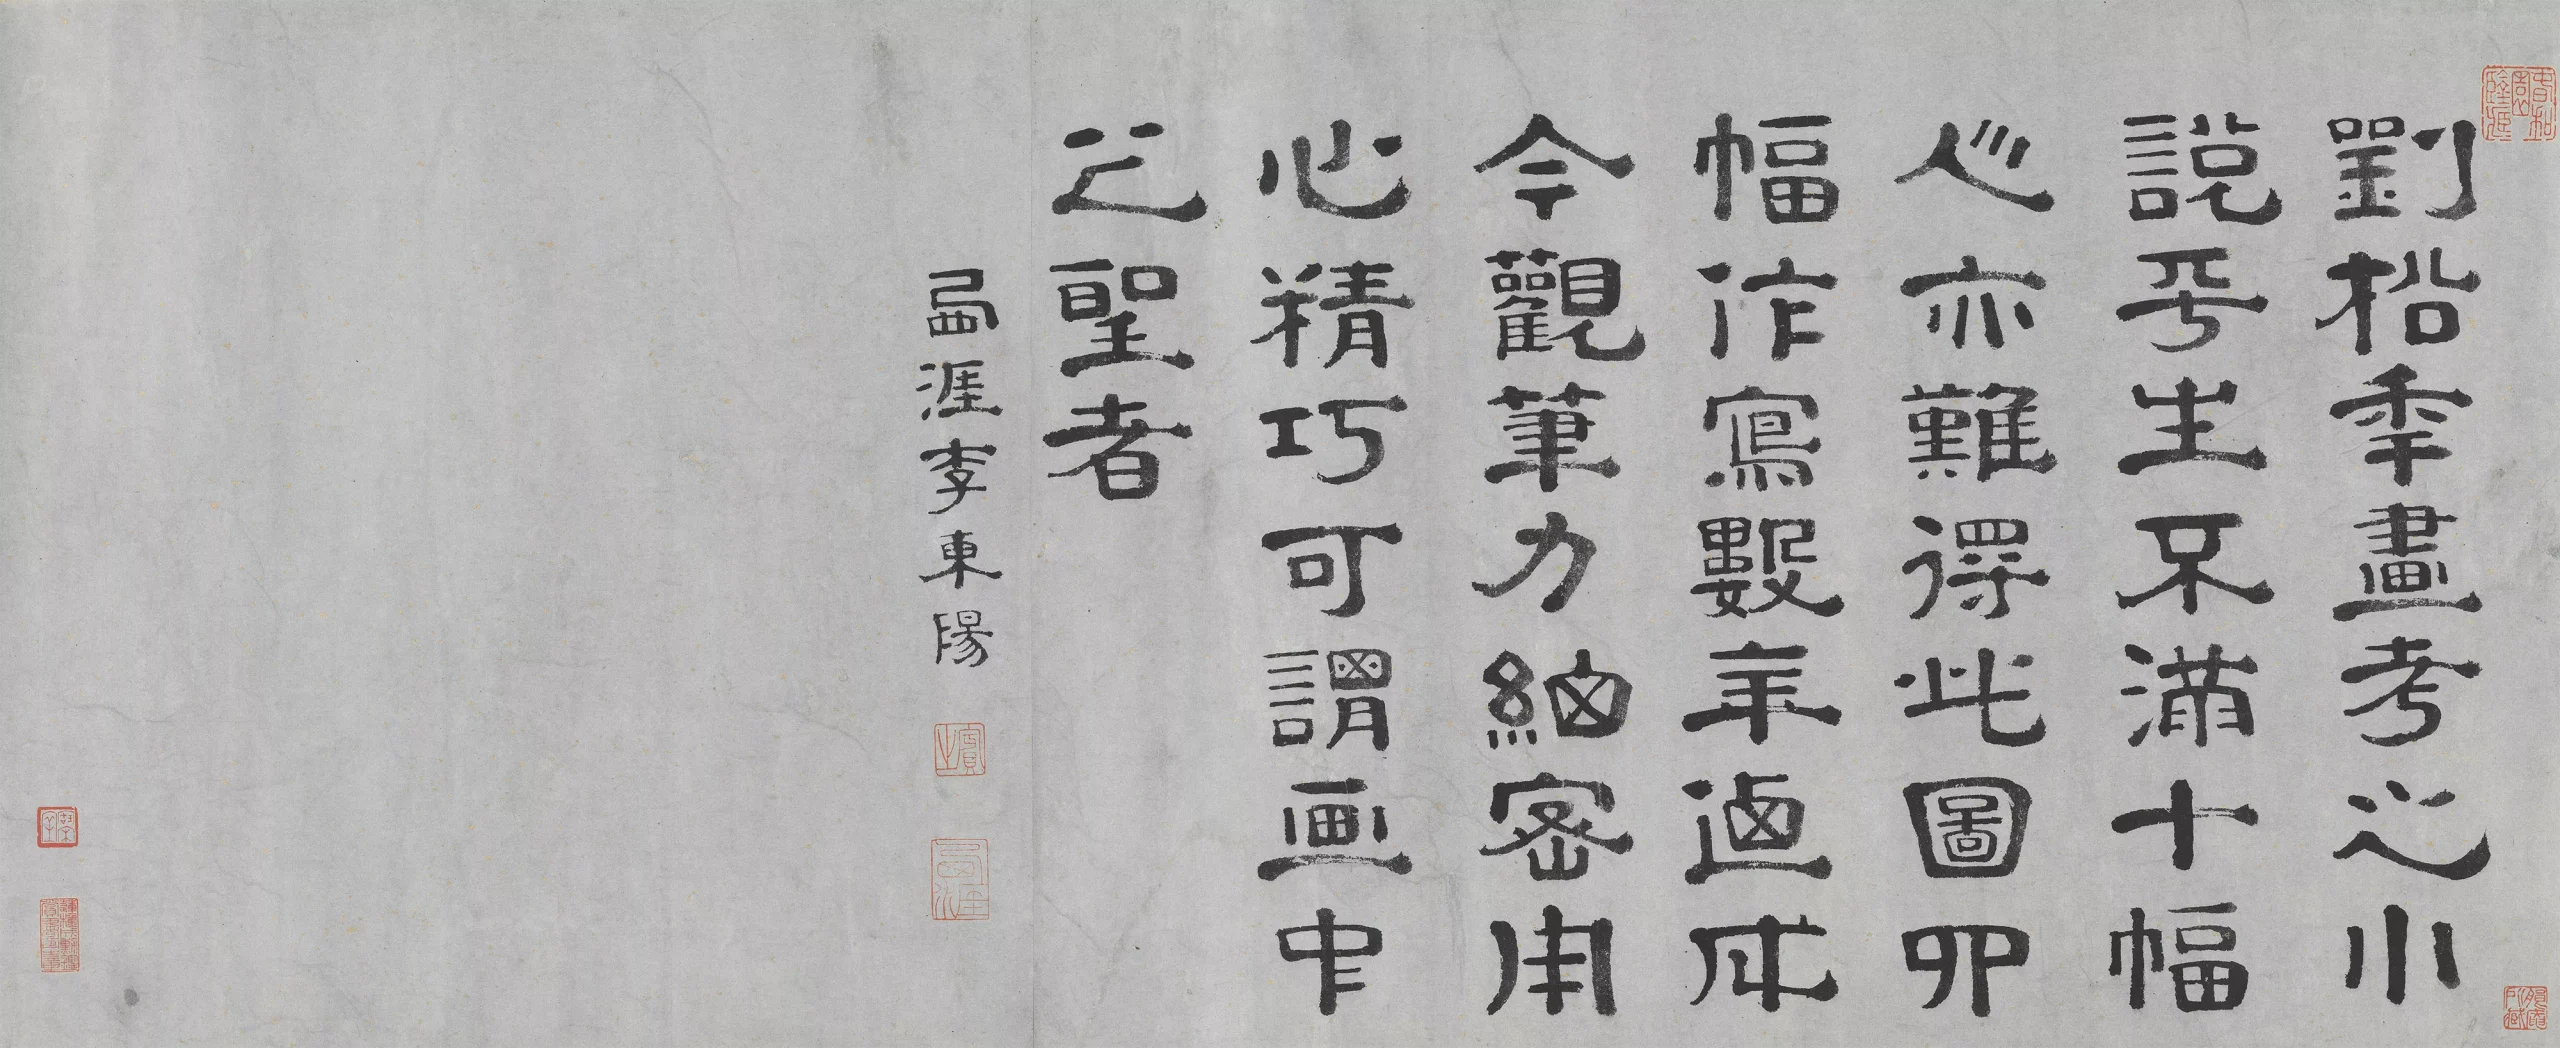 劉松年畫考之小
說平生不滿十幅
人亦難得此圖四
幅作寫數年迺成
今觀筆力細密用
心精巧可謂画中
之聖者
西涯李東陽
賓之
西涯